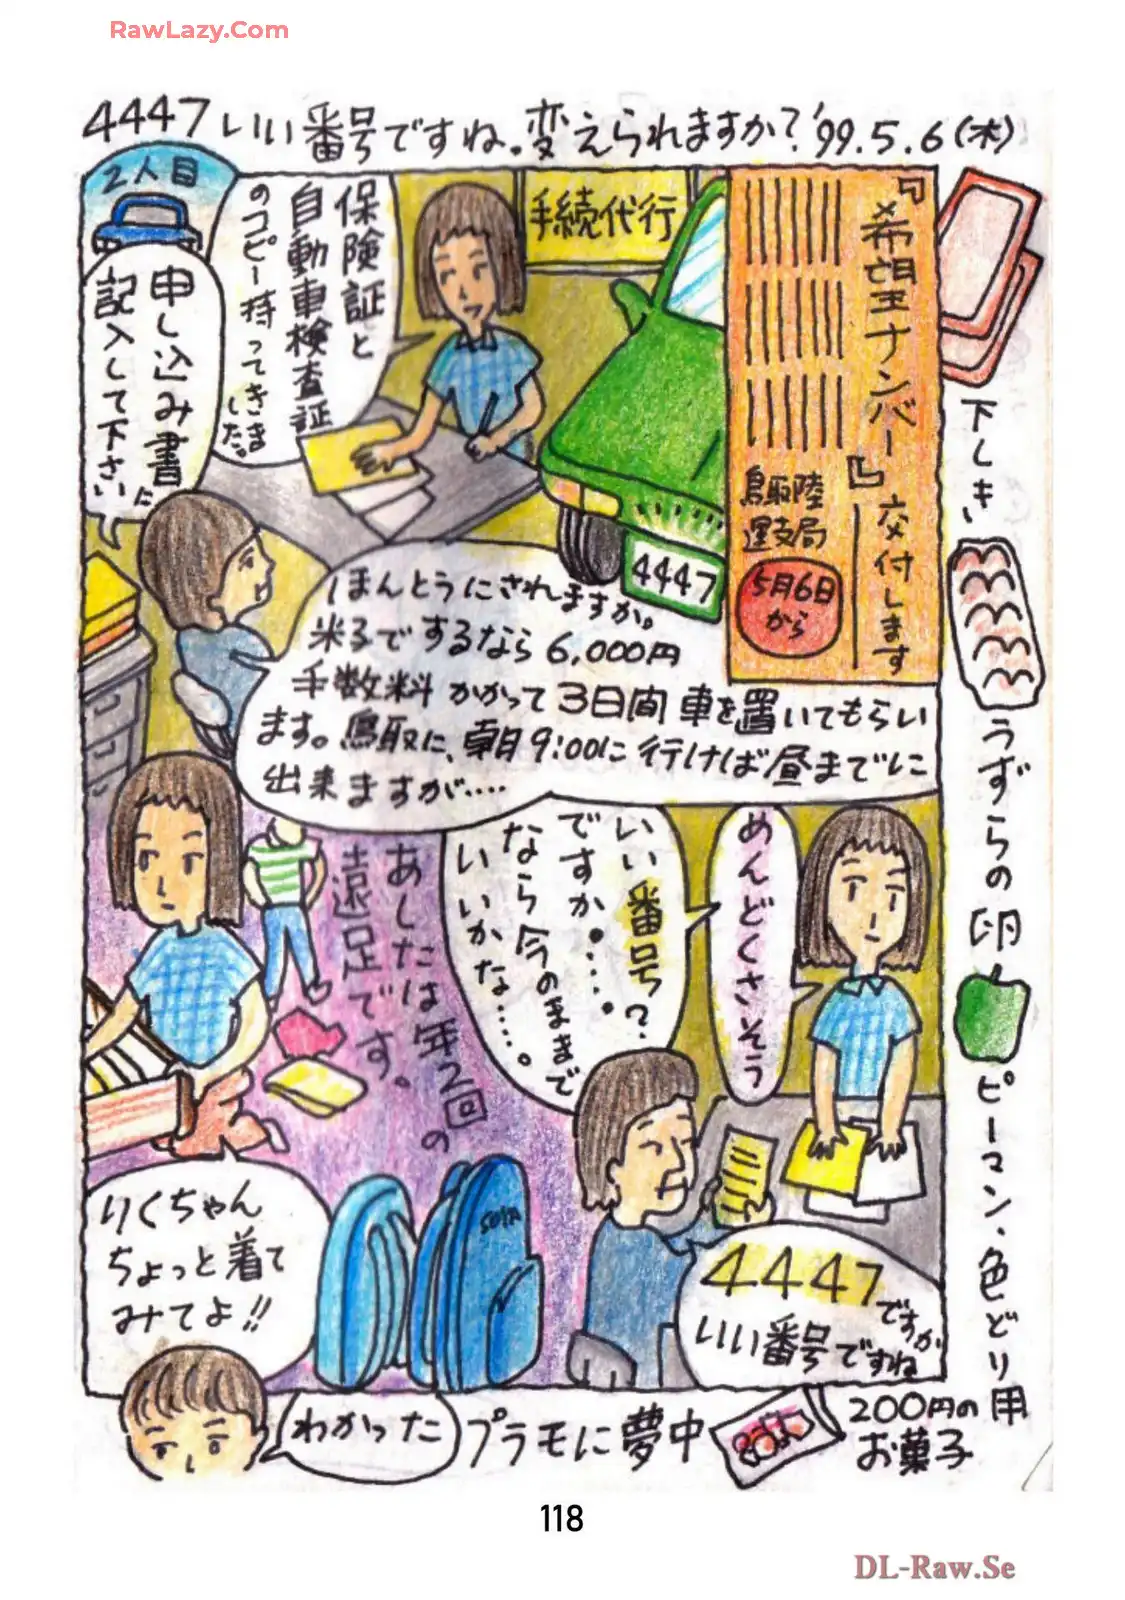 RawLazy.Com
4447いい番号ですね。変えられますか?'99.5.6(木)
2人目
申し込み書に
記入して下さい
保険証と
自動車検査証
のコピー持ってきま
した。
手続代行
『希望ナンバー』
交付します
鳥取陸
運支局
5月6日
から
4447
ほんとうにされますか。
米子でするなら6,000円
手数料かかって3日間車を置いてもらい
ます。鳥取に、朝9:00に行けば昼までに
出来ますが‥‥
めんどくさそう
いい番号?
ですか・・・・。
なら今のままで
いいかな‥‥。
4447ですが
いい番号ですね
あしたは年2回の
遠足です。
りくちゃん
ちょっと着て
みてよ!!
わかった
プラモに夢中
下しき
うずらの卵
ピーマン、色どり用
200円の
お菓子
118
DL-Raw.Se